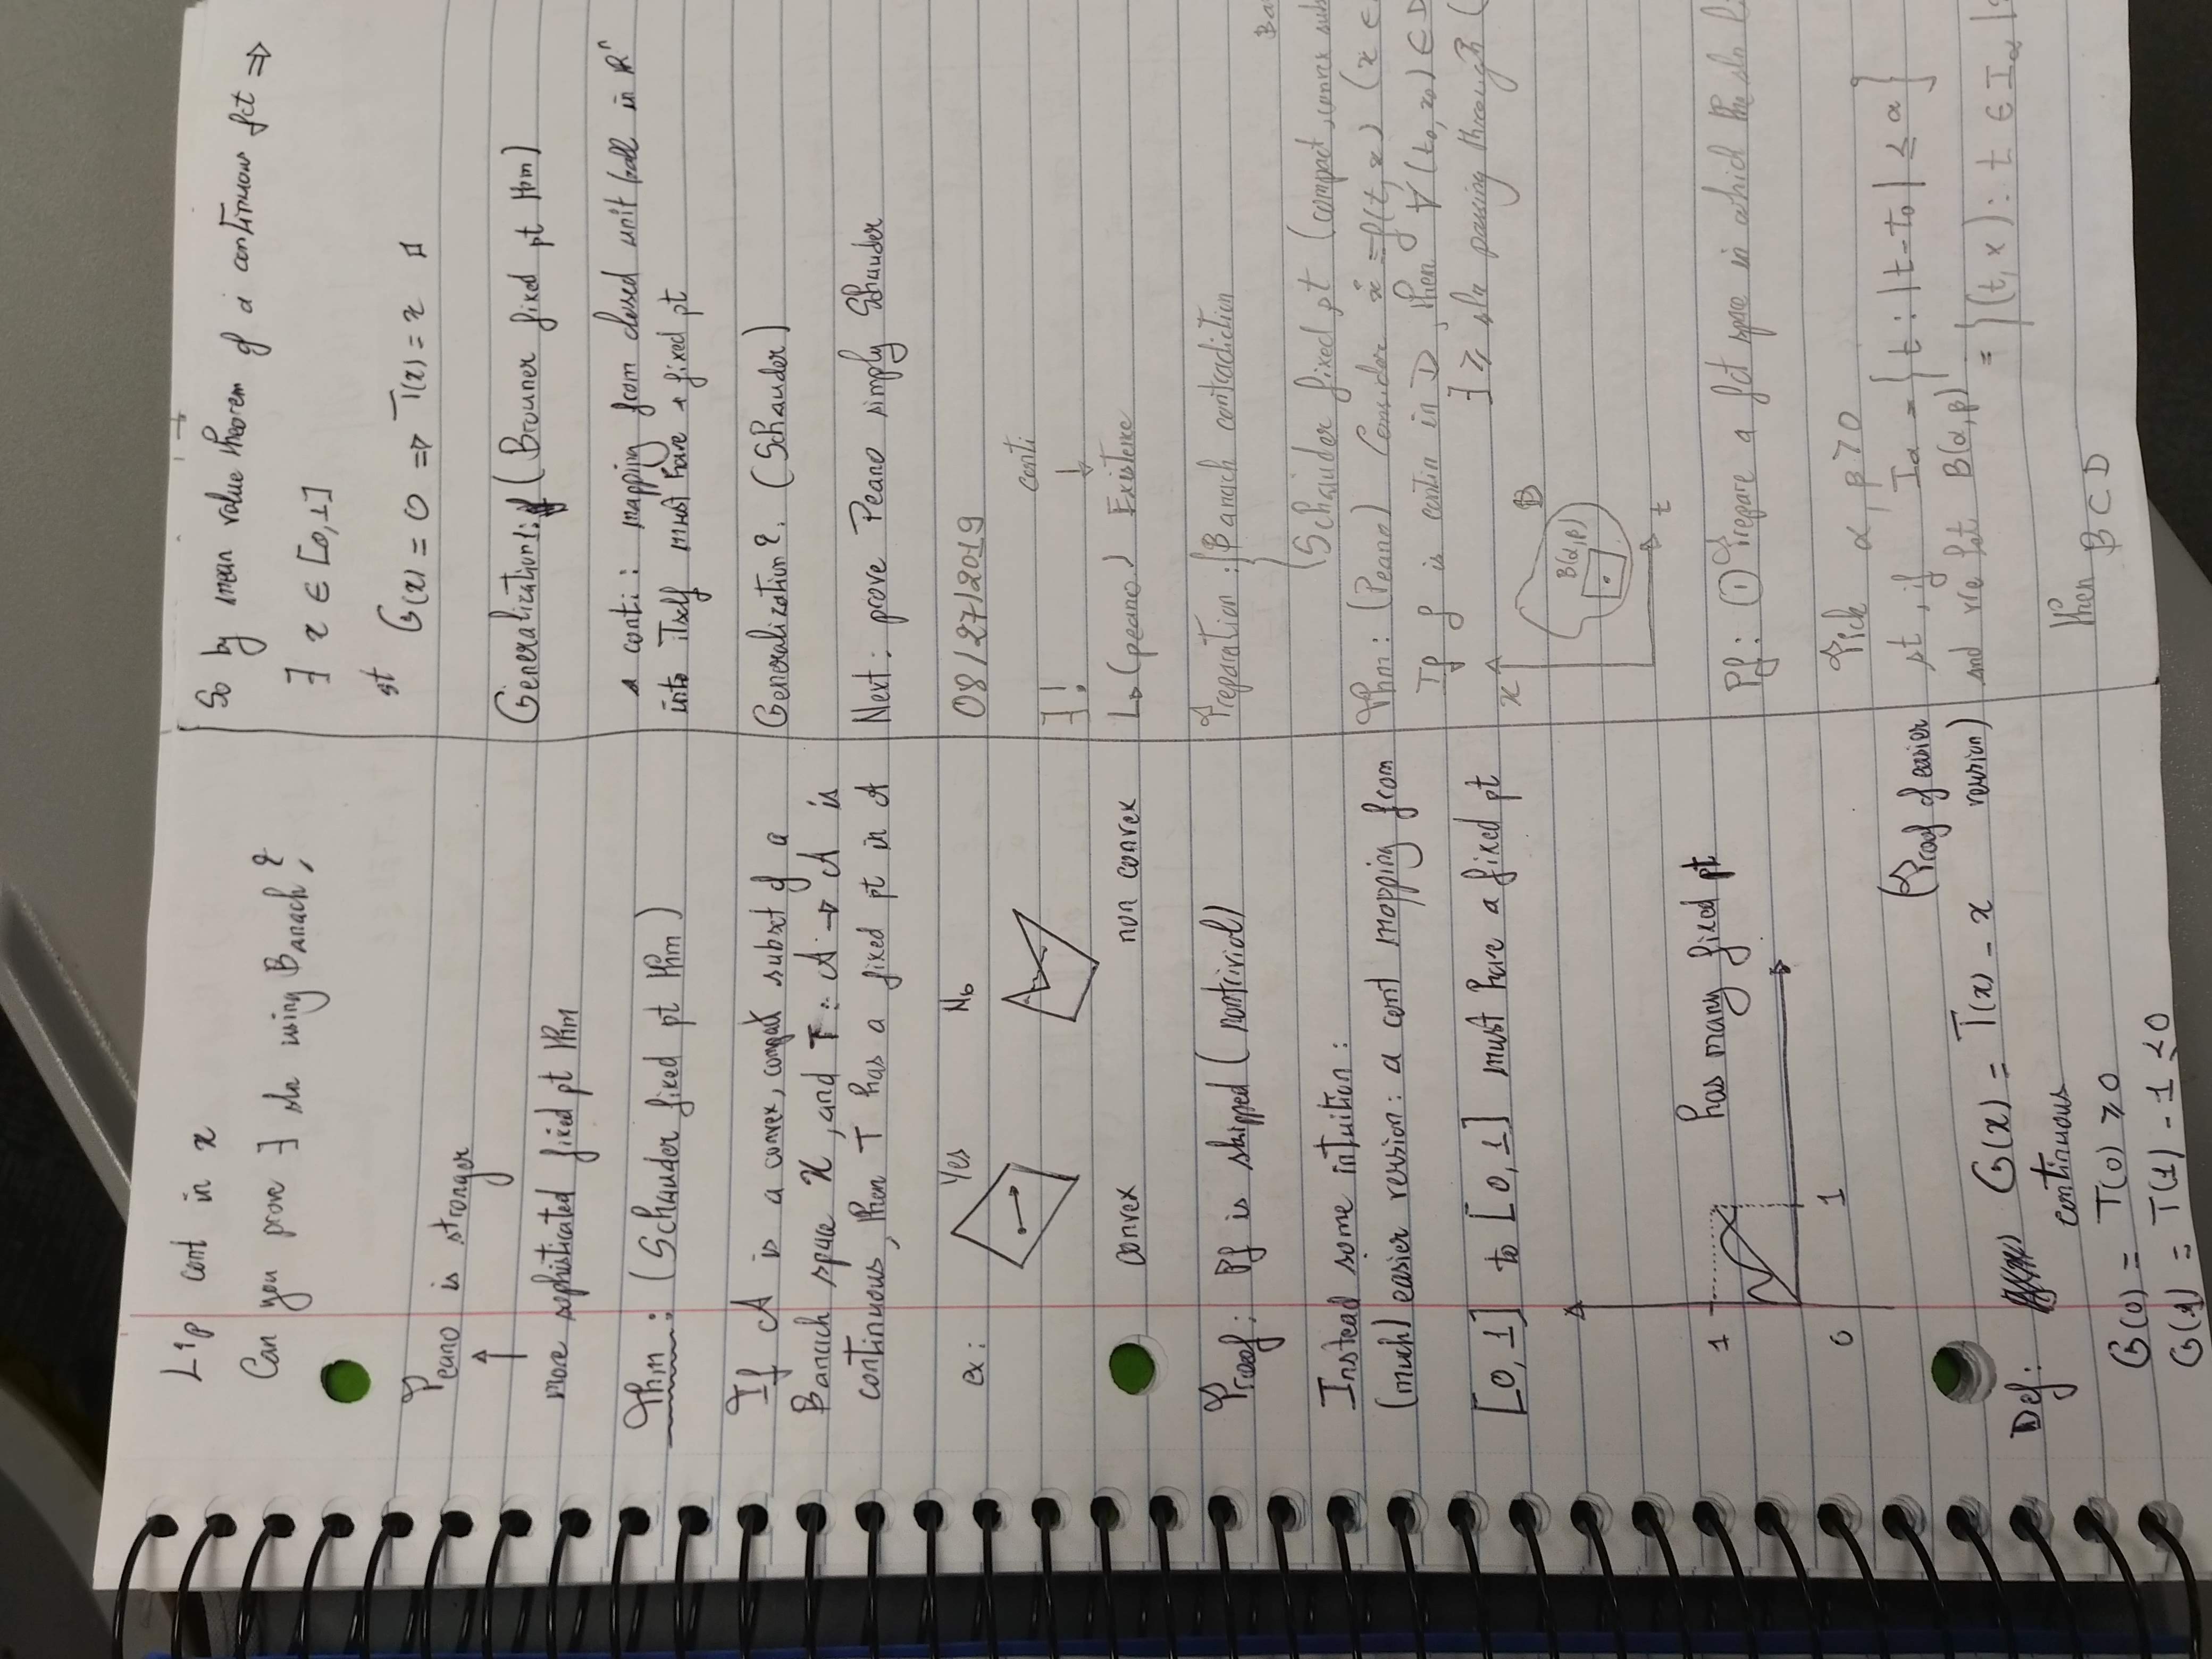 Lip cont in x
Can you prove ∃ sln using Banach?
Peano is stronger
↑
more sophisticated fixed pt thm
Thm: (Schauder fixed pt thm)
If A is a convex, compact subset of a
Banach space X, and T: A → A is
continuous, then T has a fixed pt in A
ex:
Yes
No
convex
non convex
Proof: Pf is skipped (nontrivial)
Instead some intuition:
(much) easier version: a cont mapping from
[0,1] to [0,1] must have a fixed pt
1
has many fixed pt
0
1
(Proof of easier
version)
Def: G(x) = T(x) - x
continuous
G(0) = T(0) ≥ 0
G(1) = T(1) - 1 ≤ 0
So by mean value theorem of a continuous fct ⇒
∃ x ∈ [0,1]
st G(x) = 0 ⇒ T(x) = x
Generalization 1: (Brouner fixed pt thm)
a conti: mapping from closed unit ball in Rⁿ
into itself must have a fixed pt
Generalization 2: (Schauder)
Next: prove Peano simply Shauder
08/27/2019
conti
∃! ↓
↳ (peano) Existence
Preparation: { Banach contradiction
Ba
Schauder fixed pt (compact, convex sub
Thm: (Peano) Consider ẋ = f(t,x) (x ∈
If f is contin in D, then ∀ (t₀, x₀) ∈ D
∃ ≥ sln passing through (
x
B
B(α,β)
t
Pf: ① Prepare a fct space in which the sln l
Pick α, β > 0
st, if Iα = { t : |t - t₀| ≤ α }
and we let B(α,β)
= {(t,x): t ∈ Iα |
then B ⊂ D